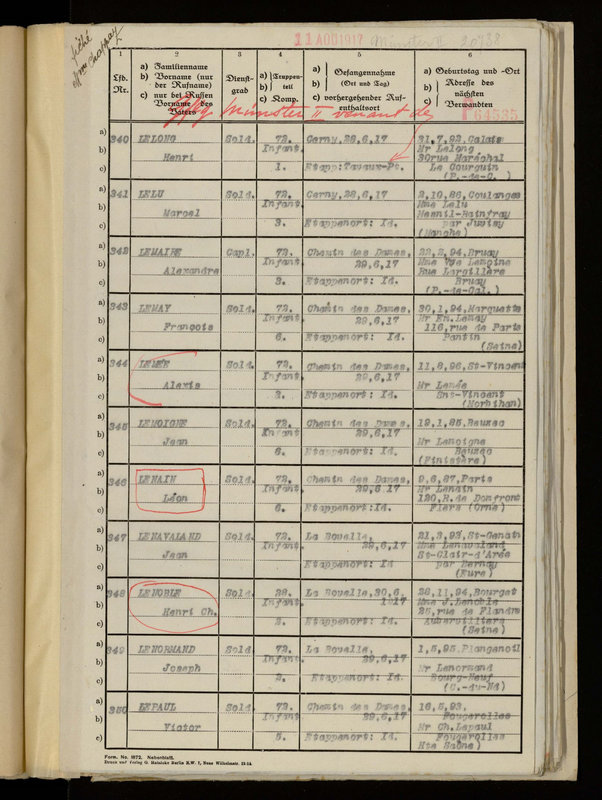 fiché
11 AOU 1917
Münster II 20438
1 2 3 4 5 6
Lfd. Nr.
a) Familienname
b) Vorname (nur der Rufname)
c) nur bei Russen Vorname des Vaters
Dienstgrad
a) Truppenteil
c) Komp.
a) Gefangennahme
b) (Ort und Tag)
c) vorhergehender Aufenthaltsort
a) Geburtstag und -Ort
b) Adresse des
c) nächsten Verwandten
Münster II venant de
P 64535
a) 340 LELONG Sold. 72. Cerny, 28,6,17 31,7,93, Calais
b) Henri Infant. Mr Lelong
30rue Maréchal
c) 1. Etapp:Tavaux-Pt. Le Courguin
(P.-de-C. )
a) 341 LELU Sold. 72. Cerny, 28,6,17 2,10,86, Coulanges
b) Marcel Infant. Mme Lelu
Mesnil-Rainfray
c) 3. Etappenort: Id. par Juvisy
(Manche)
a) 342 LEMAIRE Capl. 72. Chemin des Dames, 22,2,94, Bruay
b) Alexandre Infant. 29,6,17 Mme Vve Lemoine
Rue Largillère
c) 3. Etappenort: Id. Bruay
(P.-de-Cal.)
a) 343 LEMAY Sold. 72. Chemin des Dames, 30,1,94, Marquette
b) François Infant. 29,6,17 Mr Em. Lemay
116, rue de Paris
c) 6. Etappenort: Id. Pantin
(Seine)
a) 344 LEMÉE Sold. 72. Chemin des Dames, 11,8,96, St-Vincent
b) Alexis Infant. 29,6,17 Mr Lemée
c) 2. Etappenort: Id. Snt-Vincent
(Morbihan)
a) 345 LEMOIGNE Sold. 72. Chemin des Dames, 19,1,85, Beuzec
b) Jean Infant 29,6,17 Mr Lemoigne
c) 6. Etappenort: Id. Beuzec
(Finistère)
a) 346 LENAIN Sold. 72. Chemin des Dames, 9,6,87, Paris
b) Léon Infant. 29,6,17 Mr Lenain
120,R.de Domfront
c) 6. Etappenort:Id. Flers (Orne)
a) 347 LENAVALAND Sold. 72. La Bovelle, 21,3,93, St-Genain
b) Jean Infant. 29,6,17 Mme Lenavaland
St-Clair-d'Arée
c) Etappenort: Id par Bernay
(Eure)
a) 348 LENOBLE Sold. 28. La Bovelle,30,6, 28,11,94, Bourget
b) Henri Ch. Infant. 1917 Mme J.Lenoble
25, rue de Flandre
c) 2. Etappenort: Id. Aubervilliers
(Seine)
a) 349 LENORMAND Sold. 72. La Bovelle, 1,5,95, Planguenoil
b) Joseph Infant. 29,6,17 Mr Lenormand
c) 2. Etappenort: Id. Bourg-Neuf
(C.-du-Nd)
a) 350 LEPAUL Sold. 72. Chemin des Dames, 16,5,93,
b) Victor Infant. 29,6,17 Fougerolles
Mr Ch.Lepaul
c) 5. Etappenort: Id. Fougerolles
Hte Saône)
Form. No. 1972. Nebenblatt.
Druck und Verlag G. Hatzicke Berlin N.W. 7, Neue Wilhelmstr. 13-14.